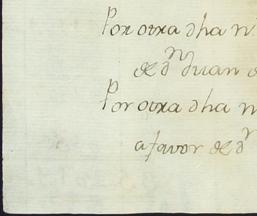 Por otra dha n
de Dn Juan d
Por otra dha n
a favor de Dn